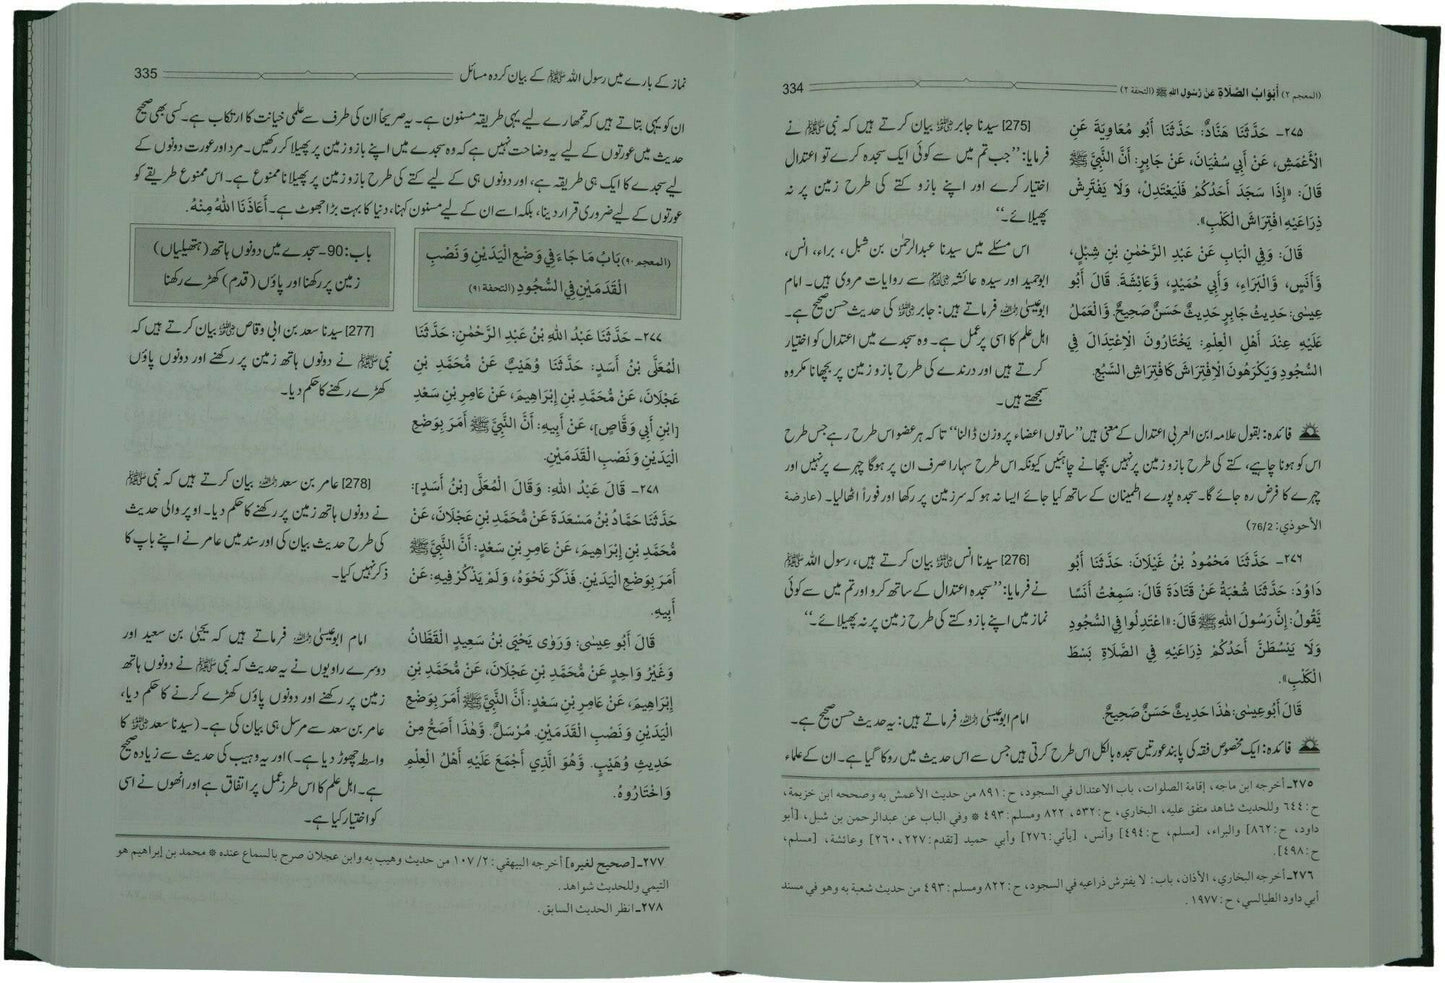 (المعجم ٢) أبواب الصلاة عن رسول الله ﷺ (التحفة ٢) 334
٢٧٥ـ حَدَّثَنَا هَنَّادٌ: حَدَّثَنَا أَبُو مُعَاوِيَةَ عَنِ
الْأَعْمَشِ، عَنْ أَبِي سُفْيَانَ، عَنْ جَابِرٍ: أَنَّ النَّبِيَّ ﷺ
قَالَ: «إِذَا سَجَدَ أَحَدُكُمْ فَلْيَعْتَدِلْ، وَلَا يَفْتَرِشْ
ذِرَاعَيْهِ افْتِرَاشَ الْكَلْبِ».
قَالَ: وَفِي الْبَابِ عَنْ عَبْدِ الرَّحْمٰنِ بْنِ شِبْلٍ،
وَأَنَسٍ، وَالْبَرَاءِ، وَأَبِي حُمَيْدٍ، وَعَائِشَةَ. قَالَ أَبُو
عِيسَى: حَدِيثُ جَابِرٍ حَدِيثٌ حَسَنٌ صَحِيحٌ. وَالْعَمَلُ
عَلَيْهِ عِنْدَ أَهْلِ الْعِلْمِ: يَخْتَارُونَ الْاِعْتِدَالَ فِي
السُّجُودِ وَيَكْرَهُونَ الْاِفْتِرَاشَ كَافْتِرَاشِ السَّبُعِ.
[275] سیدنا جابر رضی اللہ عنہ بیان کرتے ہیں کہ نبی ﷺ نے
فرمایا: ’’جب تم میں سے کوئی ایک سجدہ کرے تو اعتدال
اختیار کرے اور اپنے بازو کتے کی طرح زمین پر نہ
پھیلائے۔‘‘
اس مسئلے میں سیدنا عبدالرحمٰن بن شبل، براء، انس،
ابوحمید اور سیدہ عائشہ رضی اللہ عنہم سے روایات مروی ہیں۔ امام
ابوعیسیٰ رحمہ اللہ فرماتے ہیں: جابر رضی اللہ عنہ کی حدیث حسن صحیح ہے۔
اہل علم کا اسی پر عمل ہے۔ وہ سجدے میں اعتدال کو اختیار
کرتے ہیں اور درندے کی طرح بازو زمین پر بچھانا مکروہ
سمجھتے ہیں۔
فائدہ: بقول علامہ ابن العربی اعتدال کے معنی ہیں ’’ساتوں اعضاء پر وزن ڈالنا‘‘ تاکہ ہر عضو اس طرح رہے جس طرح
اس کو ہونا چاہیے، کتے کی طرح بازو زمین پر نہیں بچھانے چاہئیں کیونکہ اس طرح سہارا صرف ان پر ہوگا چہرے پر نہیں اور
چہرے کا فرض رہ جائے گا۔ سجدہ پورے اطمینان کے ساتھ کیا جائے ایسا نہ ہو کہ سر زمین پر رکھا اور فوراً اٹھا لیا۔ (عارضة
الأحوذي: 76/2)
٢٧٦ـ حَدَّثَنَا مَحْمُودُ بْنُ غَيْلَانَ: حَدَّثَنَا أَبُو
دَاوُدَ: حَدَّثَنَا شُعْبَةُ عَنْ قَتَادَةَ قَالَ: سَمِعْتُ أَنَسًا
يَّقُولُ: إِنَّ رَسُولَ اللهِ ﷺ قَالَ: «اعْتَدِلُوا فِي السُّجُودِ
وَلَا يَبْسُطَنَّ أَحَدُكُمْ ذِرَاعَيْهِ فِي الصَّلَاةِ بَسْطَ
الْكَلْبِ».
قَالَ أَبُو عِيسَى: هٰذَا حَدِيثٌ حَسَنٌ صَحِيحٌ.
[276] سیدنا انس رضی اللہ عنہ بیان کرتے ہیں، رسول اللہ ﷺ
نے فرمایا: ’’سجدہ اعتدال کے ساتھ کرو اور تم میں سے کوئی
نماز میں اپنے بازو کتے کی طرح زمین پر نہ پھیلائے۔‘‘
امام ابوعیسیٰ رحمہ اللہ فرماتے ہیں: یہ حدیث حسن صحیح ہے۔
فائدہ: ایک مخصوص فقہ کی پابند عورتیں سجدہ بالکل اس طرح کرتی ہیں جس سے اس حدیث میں روکا گیا ہے۔ ان کے علماء
٢٧٥ـ أخرجه ابن ماجه، إقامة الصلوات، باب الاعتدال في السجود، ح: ٨٩١ من حديث الأعمش به وصححه ابن خزيمة،
ح: ٦٤٤ وللحديث شاهد متفق عليه، البخاري، ح: ٥٣٢، ٨٢٢ ومسلم: ٤٩٣ * وفي الباب عن عبدالرحمن بن شبل، [أبو
داود، ح: ٨٦٢] والبراء، [مسلم، ح: ٤٩٤] وأنس، [يأتي: ٢٧٦] وأبي حميد [تقدم: ٢٢٧، ٢٦٠] وعائشة، [مسلم،
ح: ٤٩٨].
٢٧٦ـ أخرجه البخاري، الأذان، باب: لا يفترش ذراعيه في السجود، ح: ٨٢٢ ومسلم: ٤٩٣ من حديث شعبة به وهو في مسند
أبي داود الطيالسي، ح: ١٩٧٧.
نماز کے بارے میں رسول اللہ ﷺ کے بیان کردہ مسائل 335
ان کو یہی بتاتے ہیں کہ تمھارے لیے یہی طریقہ مسنون ہے۔ یہ صریحاً ان کی طرف سے علمی خیانت کا ارتکاب ہے۔ کسی بھی صحیح
حدیث میں عورتوں کے لیے یہ وضاحت نہیں ہے کہ وہ سجدے میں اپنے بازو زمین پر پھیلا کر رکھیں۔ مرد اور عورت دونوں کے
لیے سجدے کا ایک ہی طریقہ ہے، اور دونوں ہی کے لیے کتے کی طرح بازو زمین پر پھیلانا ممنوع ہے۔ اس ممنوع طریقے کو
عورتوں کے لیے ضروری قرار دینا، بلکہ اسے ان کے لیے مسنون کہنا، دنیا کا بہت بڑا جھوٹ ہے۔ أَعَاذَنَا اللهُ مِنْهُ.
(المعجم ٩٠) بَابُ مَا جَاءَ فِي وَضْعِ الْيَدَيْنِ وَنَصْبِ
الْقَدَمَيْنِ فِي السُّجُودِ (التحفة ٩١)
باب: 90- سجدے میں دونوں ہاتھ (ہتھیلیاں)
زمین پر رکھنا اور پاؤں (قدم) کھڑے رکھنا
٢٧٧ـ حَدَّثَنَا عَبْدُ اللهِ بْنُ عَبْدِ الرَّحْمٰنِ: حَدَّثَنَا
الْمُعَلَّى بْنُ أَسَدٍ: حَدَّثَنَا وُهَيْبٌ عَنْ مُّحَمَّدِ بْنِ
عَجْلَانَ، عَنْ مُّحَمَّدِ بْنِ إِبْرَاهِيمَ، عَنْ عَامِرِ بْنِ سَعْدِ
[ابْنِ أَبِي وَقَّاصٍ]، عَنْ أَبِيهِ: أَنَّ النَّبِيَّ ﷺ أَمَرَ بِوَضْعِ
الْيَدَيْنِ وَنَصْبِ الْقَدَمَيْنِ.
[277] سیدنا سعد بن ابی وقاص رضی اللہ عنہ بیان کرتے ہیں کہ
نبی ﷺ نے دونوں ہاتھ زمین پر رکھنے اور دونوں پاؤں
کھڑے رکھنے کا حکم دیا۔
٢٧٨ـ قَالَ عَبْدُ اللهِ: وَقَالَ الْمُعَلَّى [بْنُ أَسَدٍ]:
حَدَّثَنَا حَمَّادُ بْنُ مَسْعَدَةَ عَنْ مُّحَمَّدِ بْنِ عَجْلَانَ، عَنْ
مُّحَمَّدِ بْنِ إِبْرَاهِيمَ، عَنْ عَامِرِ بْنِ سَعْدٍ: أَنَّ النَّبِيَّ ﷺ
أَمَرَ بِوَضْعِ الْيَدَيْنِ. فَذَكَرَ نَحْوَهُ، وَلَمْ يَذْكُرْ فِيهِ: عَنْ
أَبِيهِ.
[278] عامر بن سعد رحمہ اللہ بیان کرتے ہیں کہ نبی ﷺ
نے دونوں ہاتھ زمین پر رکھنے کا حکم دیا۔ اوپر والی حدیث
کی طرح حدیث بیان کی اور سند میں عامر نے اپنے باپ کا
ذکر نہیں کیا۔
قَالَ أَبُو عِيسَى: وَرَوٰى يَحْيَى بْنُ سَعِيدٍ الْقَطَّانُ
وَغَيْرُ وَاحِدٍ عَنْ مُّحَمَّدِ بْنِ عَجْلَانَ، عَنْ مُّحَمَّدِ بْنِ
إِبْرَاهِيمَ، عَنْ عَامِرِ بْنِ سَعْدٍ: أَنَّ النَّبِيَّ ﷺ أَمَرَ بِوَضْعِ
الْيَدَيْنِ وَنَصْبِ الْقَدَمَيْنِ. مُرْسَلٌ. وَّهٰذَا أَصَحُّ مِنْ
حَدِيثِ وُهَيْبٍ. وَّهُوَ الَّذِي أَجْمَعَ عَلَيْهِ أَهْلُ الْعِلْمِ
وَاخْتَارُوهُ.
امام ابوعیسیٰ رحمہ اللہ فرماتے ہیں کہ یحییٰ بن سعید اور
دوسرے راویوں نے یہ حدیث کہ نبی ﷺ نے دونوں ہاتھ
زمین پر رکھنے اور دونوں پاؤں کھڑے کرنے کا حکم دیا،
عامر بن سعد سے مرسل ہی بیان کی ہے۔ (سیدنا سعد رضی اللہ عنہ کا
واسطہ چھوڑ دیا ہے۔) اور یہ وہیب کی حدیث سے زیادہ صحیح
ہے۔ اہل علم کا اس طرز عمل پر اتفاق ہے اور انھوں نے اسی
کو اختیار کیا ہے۔
٢٧٧ـ [صحيح لغيره] أخرجه البيهقي: ٢/ ١٠٧ من حديث وهيب به وابن عجلان صرح بالسماع عنده * محمد بن إبراهيم هو
التيمي وللحديث شواهد.
٢٧٨ـ انظر الحديث السابق.